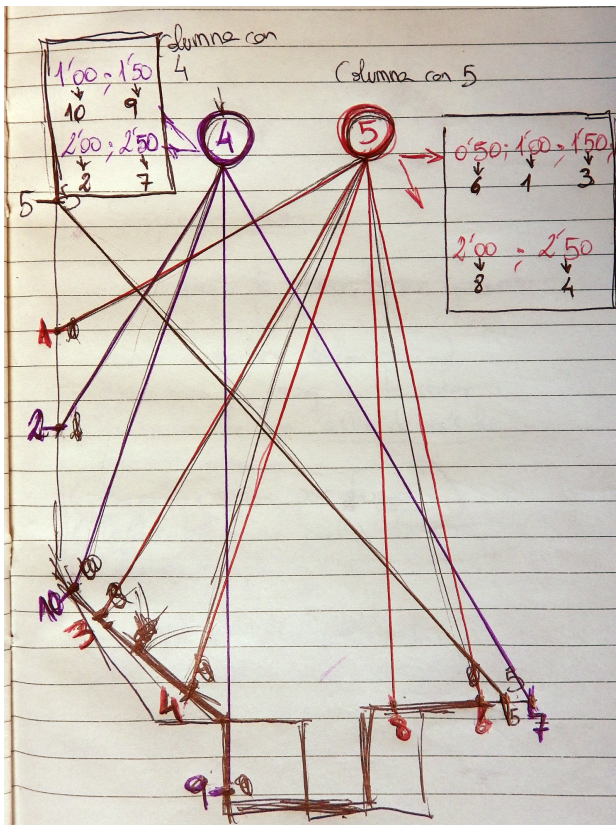 Columna con
4
1'00 - 1'50
10 9
2'00 ; 2'50
2 7
Columna con 5
4
5
0'50 ; 1'00 - 1'50
6 1 3
2'00 - 2'50
8 4
5
1
2
10
3
4
9
8
5
5
7